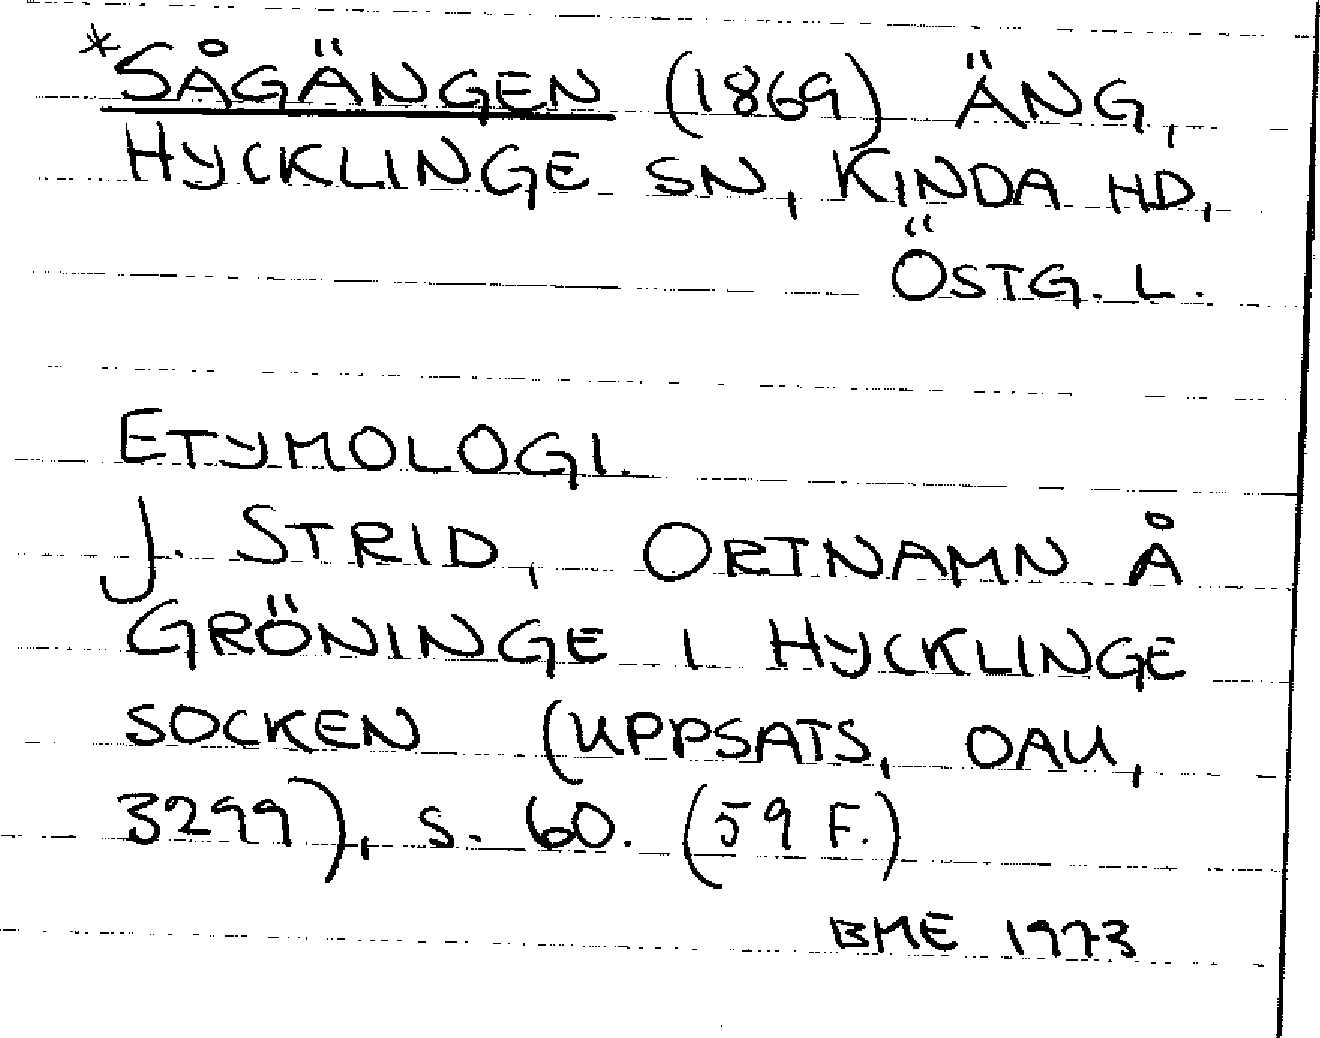 *SÅGÄNGEN (1869) ÄNG,
HYCKLINGE SN, KINDA HD,
ÖSTG. L.
ETYMOLOGI.
J. STRID, ORTNAMN Å
GRÖNINGE I HYCKLINGE
SOCKEN (UPPSATS, OAU,
3299), S. 60. (59 F.)
BME 1973